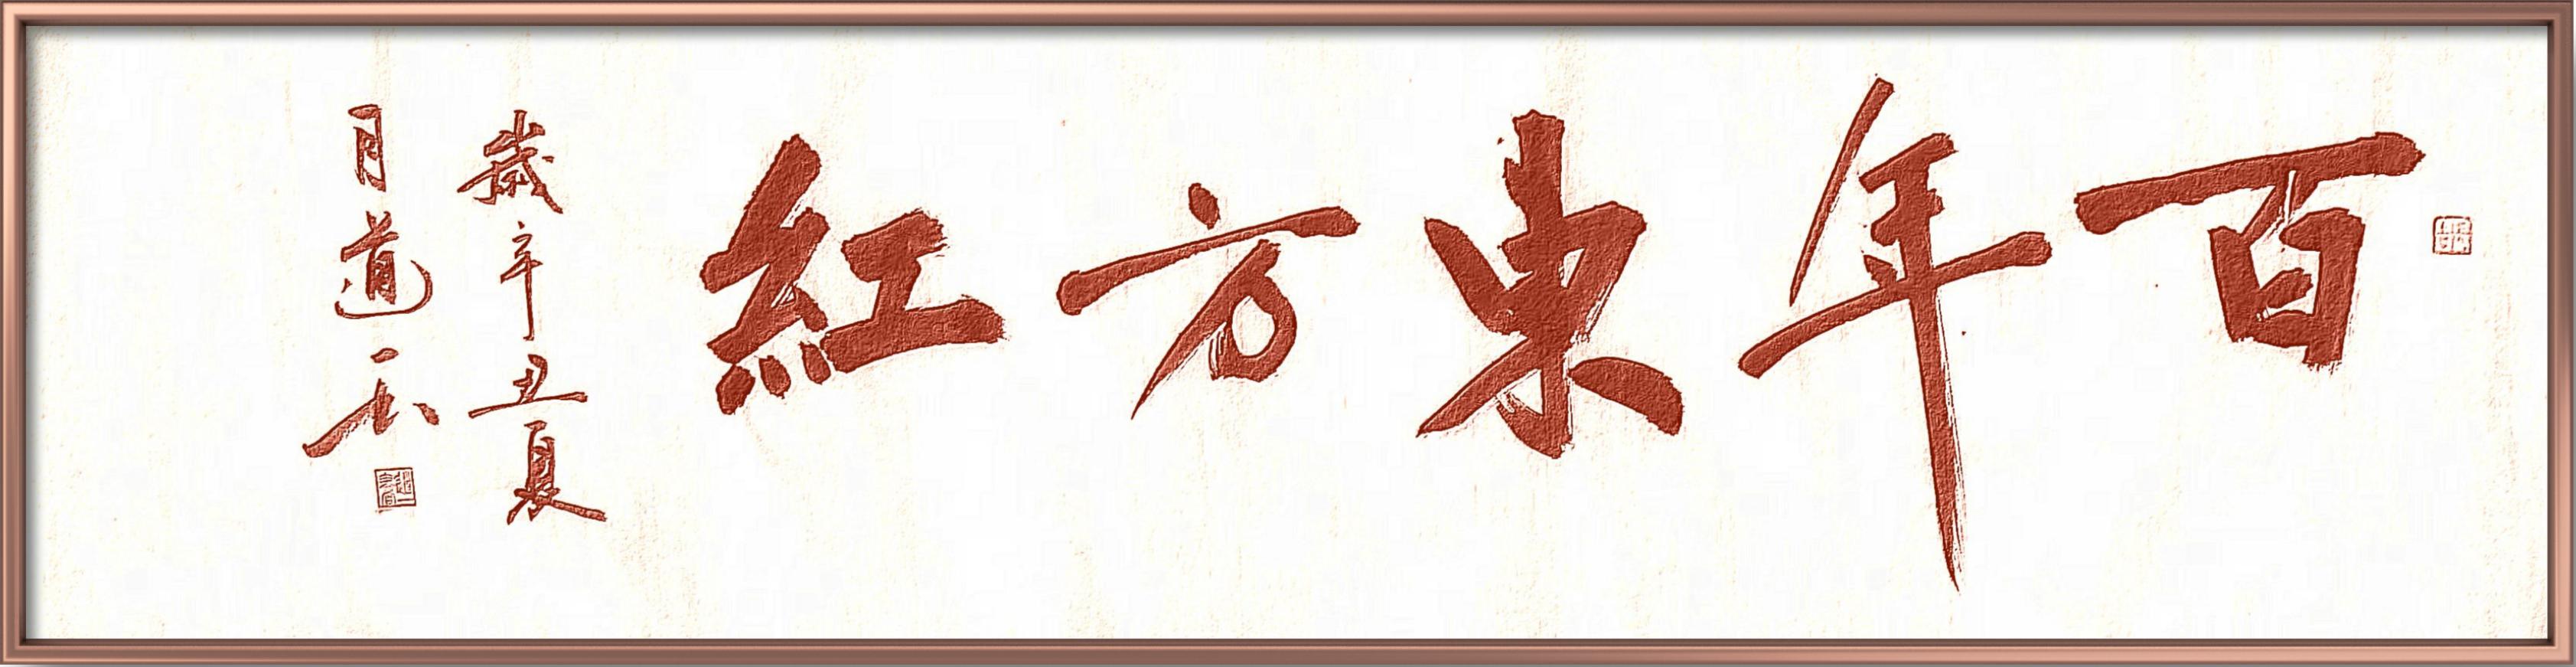 百年東方紅
歲辛丑夏
月道一书